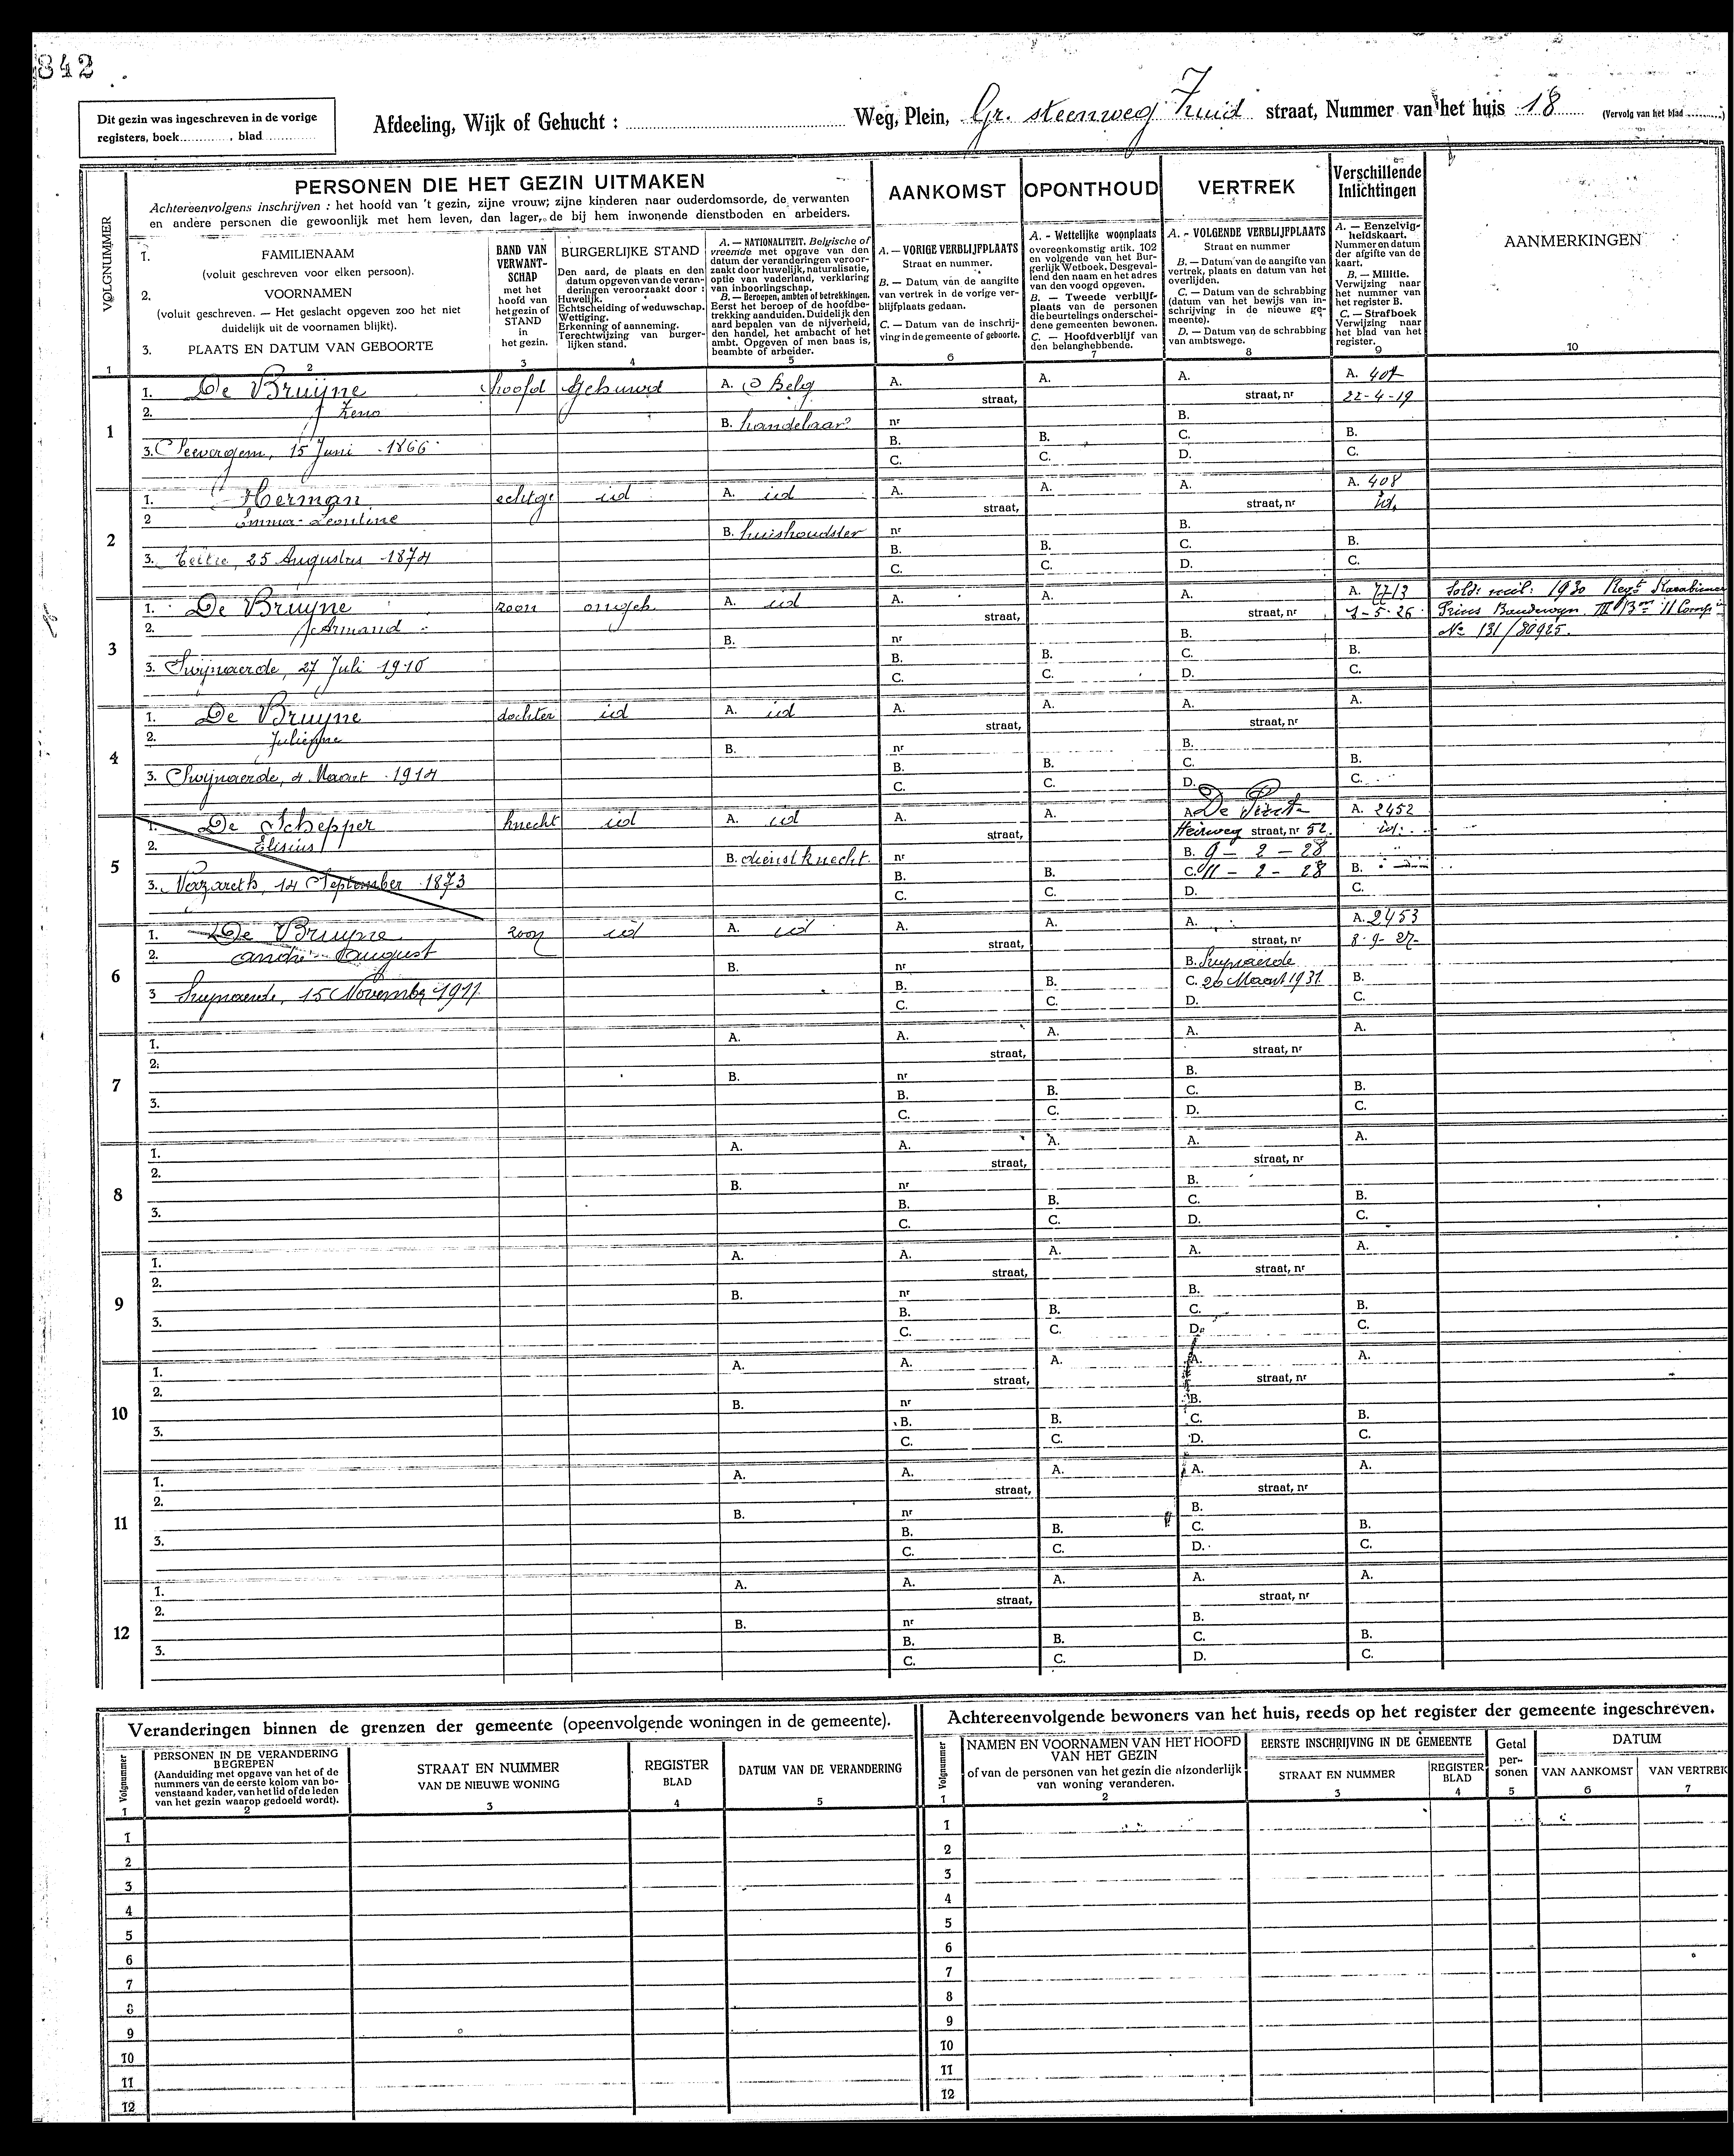 842
Dit gezin was ingeschreven in de vorige
registers, boek............, blad............
Afdeeling, Wijk of Gehucht : ............ Weg, Plein, Gr. steenweg Zuid straat, Nummer van het huis 18 (Vervolg van het blad ..........)
VOLGNUMMER
PERSONEN DIE HET GEZIN UITMAKEN
Achtereenvolgens inschrijven : het hoofd van 't gezin, zijne vrouw; zijne kinderen naar ouderdomsorde, de verwanten
en andere personen die gewoonlijk met hem leven, dan lager, de bij hem inwonende dienstboden en arbeiders.
1. FAMILIENAAM
(voluit geschreven voor elken persoon).
2. VOORNAMEN
(voluit geschreven. — Het geslacht opgeven zoo het niet
duidelijk uit de voornamen blijkt).
3. PLAATS EN DATUM VAN GEBOORTE
BAND VAN
VERWANT-
SCHAP
met het
hoofd van
het gezin of
STAND
in
het gezin.
BURGERLIJKE STAND
Den aard, de plaats en den
datum opgeven van de veran-
deringen veroorzaakt door :
Huwelijk.
Echtscheiding of weduwschap.
Wettiging.
Erkenning of aanneming.
Terechtwijzing van burger-
lijken stand.
A. — NATIONALITEIT. Belgische of
vreemde met opgave van den
datum der veranderingen veroor-
zaakt door huwelijk, naturalisatie,
optie van vaderland, verklaring
van inboorlingschap.
B. — Beroepen, ambten of betrekkingen.
Eerst het beroep of de hoofdbe-
trekking aanduiden. Duidelijk den
aard bepalen van de nijverheid,
den handel, het ambacht of het
ambt. Opgeven of men baas is,
beambte of arbeider.
AANKOMST
A. — VORIGE VERBLIJFPLAATS
Straat en nummer.
B. — Datum van de aangifte
van vertrek in de vorige ver-
blijfplaats gedaan.
C. — Datum van de inschrij-
ving in de gemeente of geboorte.
OPONTHOUD
A. - Wettelijke woonplaats
overeenkomstig artik. 102
en volgende van het Bur-
gerlijk Wetboek. Desgeval-
lend den naam en het adres
van den voogd opgeven.
B. — Tweede verblijf-
plaats van de personen
die beurtelings onderschei-
dene gemeenten bewonen.
C. — Hoofdverblijf van
den belanghebbende.
VERTREK
A. - VOLGENDE VERBLIJFPLAATS
Straat en nummer
B. — Datum van de aangifte van
vertrek, plaats en datum van het
overlijden.
C. — Datum van de schrabbing
(datum van het bewijs van in-
schrijving in de nieuwe ge-
meente).
D. — Datum van de schrabbing
van ambtswege.
Verschillende
Inlichtingen
A. — Eenzelvig-
heidskaart.
Nummer en datum
der afgifte van de
kaart.
B. — Militie.
Verwijzing naar
het nummer van
het register B.
C. — Strafboek
Verwijzing naar
het blad van het
register.
AANMERKINGEN
1 2 3 4 5 6 7 8 9 10
1
1. De Bruijne hoofd Gehuwd A. Belg A. straat, A. A. straat, nr A. 407
2. Zeno 22-4-19
B. handelaar nr B.
3. Seevergem, 15 Juni 1866 B. C. B. C. C. D. B. C.
2
1. Herman echtge id A. id A. straat, A. A. straat, nr A. 408
2 Emma-Leontine id.
B. huishoudster nr B.
3. 25 Augustus 1874 B. C. B. C. C. D. B. C.
3
1. De Bruyne zoon ongeh. A. id A. straat, A. A. straat, nr A. 7713 Sold. mil: 1930 Regt Karabiniers
2. Armand 1-5-26 Prins Boudewyn III Bon 11 Comp
B. nr B. No 131/80925.
3. Swijnaerde, 27 Juli 1910 B. C. B. C. C. D. B. C.
4
1. De Bruyne dochter id A. id A. straat, A. A. straat, nr A.
2. Julienne
B. nr B.
3. Swijnaerde, 4 Maart 1914 B. C. B. C. C. D. B. C.
5
1. De Schepper knecht id A. id A. straat, A. A. De Pinte A. 2452
2. Elisius Heirweg straat, nr 52. id.
B. dienstknecht. nr B. 9 - 2 - 28
3. Nazareth, 14 September 1873 B. C. B. C. C. 11 - 2 - 28 D. B. C.
6
1. De Bruyne zoon id A. id A. straat, A. A. straat, nr A. 2453
2. André August 8-9-27-
B. nr B. Swynaerde
3 Swynaerde, 15 November 1911. B. C. B. C. C. 26 Maart 1931. D. B. C.
7
1. A. A. straat, A. A. straat, nr A.
2.
B. nr B.
3. B. C. B. C. C. D. B. C.
8
1. A. A. straat, A. A. straat, nr A.
2.
B. nr B.
3. B. C. B. C. C. D. B. C.
9
1. A. A. straat, A. A. straat, nr A.
2.
B. nr B.
3. B. C. B. C. C. D. B. C.
10
1. A. A. straat, A. A. straat, nr A.
2.
B. nr B.
3. B. C. B. C. C. D. B. C.
11
1. A. A. straat, A. A. straat, nr A.
2.
B. nr B.
3. B. C. B. C. C. D. B. C.
12
1. A. A. straat, A. A. straat, nr A.
2.
B. nr B.
3. B. C. B. C. C. D. B. C.
Veranderingen binnen de grenzen der gemeente (opeenvolgende woningen in de gemeente).
Volgnummer
PERSONEN IN DE VERANDERING
BEGREPEN
(Aanduiding met opgave van het of de
nummers van de eerste kolom van bo-
venstaand kader, van het lid of de leden
van het gezin waarop gedoeld wordt).
STRAAT EN NUMMER
VAN DE NIEUWE WONING
REGISTER
BLAD
DATUM VAN DE VERANDERING
1 2 3 4 5
1
2
3
4
5
6
7
8
9
10
11
12
Achtereenvolgende bewoners van het huis, reeds op het register der gemeente ingeschreven.
Volgnummer
NAMEN EN VOORNAMEN VAN HET HOOFD
VAN HET GEZIN
of van de personen van het gezin die afzonderlijk
van woning veranderen.
EERSTE INSCHRIJVING IN DE GEMEENTE
STRAAT EN NUMMER
REGISTER
BLAD
Getal
per-
sonen
DATUM
VAN AANKOMST
VAN VERTREK
1 2 3 4 5 6 7
1
2
3
4
5
6
7
8
9
10
11
12